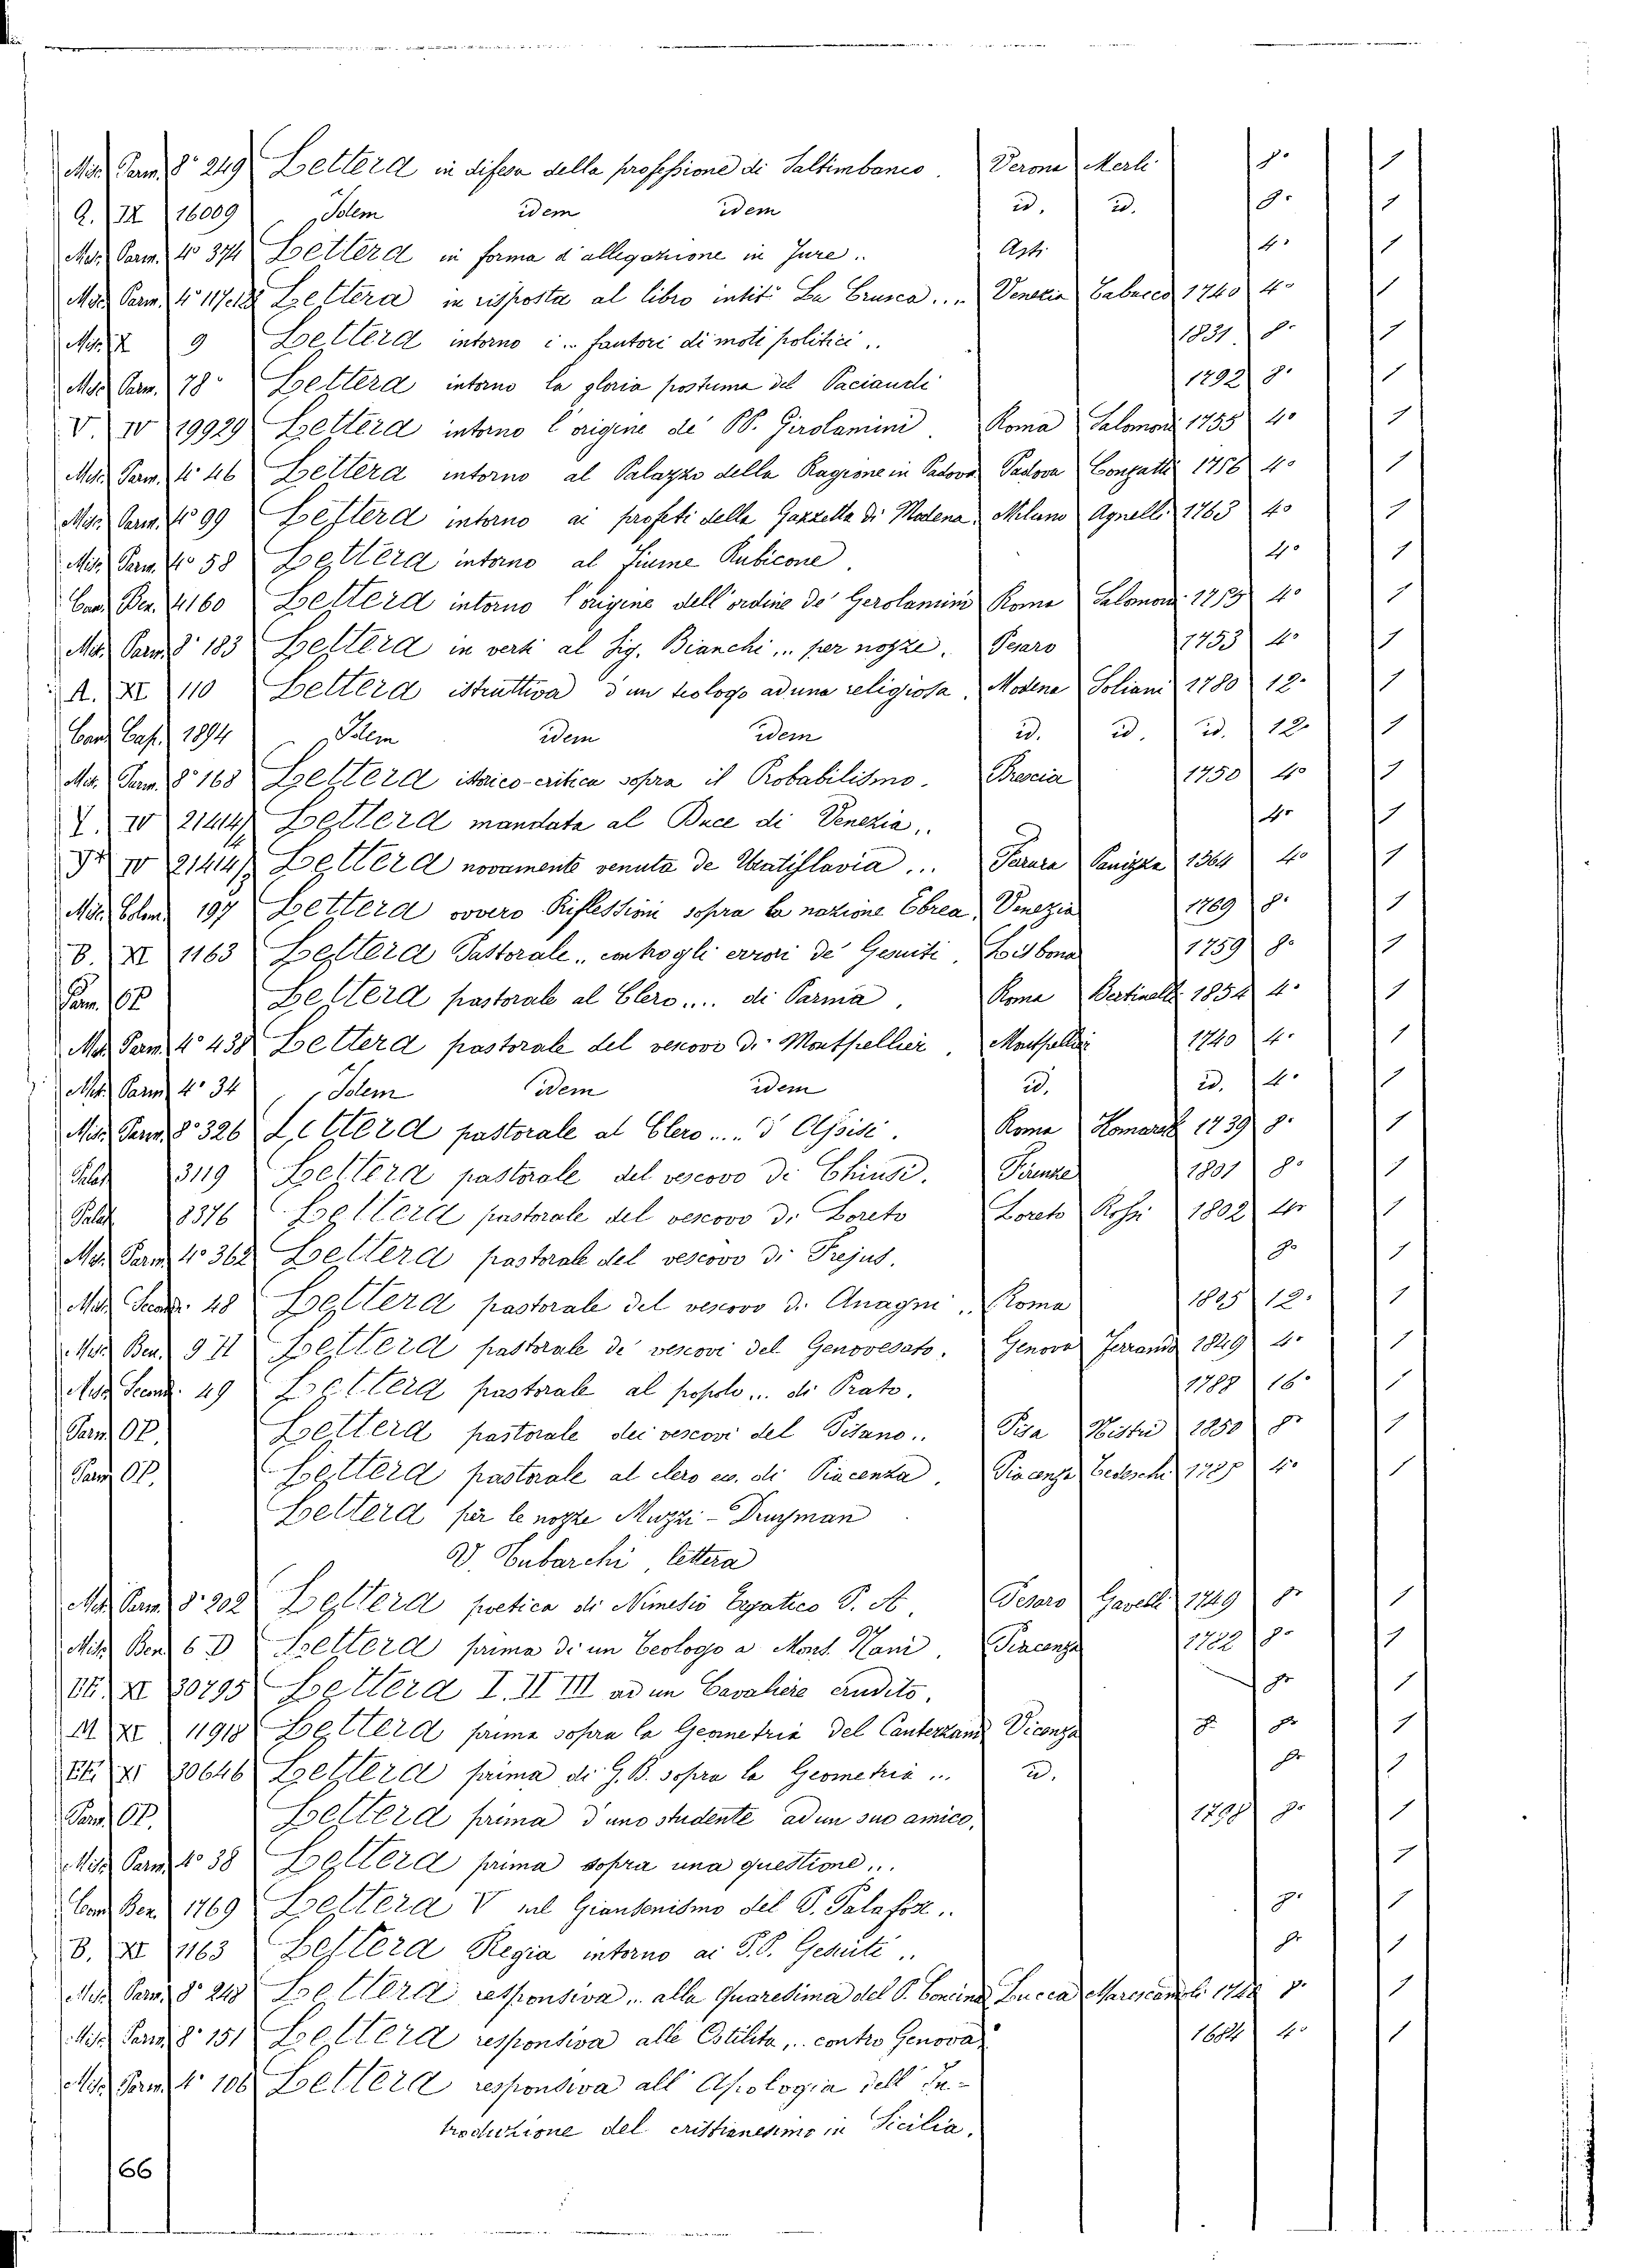 Mis. Parm. 8º 249 Lettera in difesa della professione di Saltimbanco. Verona Merli 8º 1
Q. IX 16009 Idem idem idem id. id. 8º 1
Mis. Parm. 4º 374 Lettera in forma d'allegazione in Jure.. Asti 4º 1
Mis. Parm. 4º 117 Lettera in risposta al libro intit. La Crusca... Venezia 1740 4º 1
Mis. X 9 Lettera intorno i... fautori di moti politici.. 1831. 8º 1
Mis. Parm. 78 Lettera intorno la gloria postuma del Paciaudi 1792 8º 1
V. IV 19929 Lettera intorno l'origine de' PP. Girolamini. Roma Salomoni 1755 4º 1
Mis. Parm. 4º 46 Lettera intorno al Palazzo della Ragione in Padova Padova Conzatti 1756 4º 1
Mis. Parm. 4º 99 Lettera intorno ai profeti della Gazzetta di Modena. Milano Agnelli 1763 4º 1
Mis. Parm. 4º 58 Lettera intorno al fiume Rubicone. 4º 1
Can. Ben. 4160 Lettera intorno l'origine dell'ordine de' Gerolamini Roma Salomoni 1755 4º 1
Mis. Parm. 8º 183 Lettera in versi al Sig. Bianchi... per nozze. Pesaro 1753 4º 1
A. XI 110 Lettera istruttiva d'un teologo ad una religiosa. Modena Soliani 1780 12º 1
Can. Cap. 1894 Idem idem idem id. id. id. 12º 1
Mis. Parm. 8º 168 Lettera istorico-critica sopra il Probabilismo. Brescia 1750 4º 1
V. IV 21414 Lettera mandata al Duce di Venezia.. 4º 1
IV 21414 Lettera novamente venuta de Uratislavia... Ferrara Panizza 1564 4º 1
Mis. Colom. 197 Lettera ovvero Riflessioni sopra la nazione Ebrea. Venezia 1769 8º 1
B. XI 1163 Lettera Pastorale.. contro gli errori de' Gesuiti. Lisbona 1759 8º 1
Parm. OP. Lettera pastorale al Clero.... di Parma. Roma Bertinelli 1854 4º 1
Mis. Parm. 4º 438 Lettera pastorale del vescovo di Montpellier. Montpellier 1740 4º 1
Mis. Parm. 4º 34 Idem idem idem id. id. 4º 1
Mis. Parm. 8º 326 Lettera pastorale al Clero.... d'Assisi. Roma Komarek 1739 8º 1
Palat. 3119 Lettera pastorale del vescovo di Chiusi. Firenze 1801 8º 1
Palat. 8376 Lettera pastorale del vescovo di Loreto Loreto Rossi 1802 4º 1
Mis. Parm. 4º 362 Lettera pastorale del vescovo di Frejus. 8º 1
Mis. Second. 48 Lettera pastorale del vescovo di Anagni.. Roma 1805 12º 1
Mis. Ben. 9 Lettera pastorale de' vescovi del Genovesato. Genova Ferrando 1849 4º 1
Mis. Second. 49 Lettera pastorale al popolo... di Prato. 1788 16º 1
Parm. OP. Lettera pastorale dei vescovi del Pisano.. Pisa Nistri 1850 8º 1
Parm. OP. Lettera pastorale al clero ec. di Piacenza. Piacenza Tedeschi 4º 1
Lettera per le nozze Muzzi-Druyman
V. Eubarchi, lettera
Mis. Parm. 8º 202 Lettera poetica di Nimesio Ergatico P. A. Pesaro Gavelli 1749 8º 1
Mis. Ben. 6 D Lettera prima di un Teologo a Mons. Nani. Piacenza 8º 1
XI 30795 Lettera I. II III ad un Cavaliere erudito. 8º 1
M XI 11918 Lettera prima sopra la Geometria del Canterzani Vicenza 8º 1
XI 30646 Lettera prima di G. B. sopra la Geometria... id. 8º 1
Parm. OP. Lettera prima d'uno studente ad un suo amico. 1798 8º 1
Mis. Parm. 4º 38 Lettera prima sopra una questione... 1
Can. Ben. 1769 Lettera V sul Giansenismo del P. Palafox.. 8º 1
B. XI 1163 Lettera Regia intorno ai P.P. Gesuiti.. 8º 1
Mis. Parm. 8º 248 Lettera responsiva.. alla Quaresima del P. Concina Lucca Marescandoli 8º 1
Mis. Parm. 8º 151 Lettera responsiva alle Ostilità,.. contro Genova 1684 4º 1
Mis. Parm. 4º 106 Lettera responsiva all'Apologia dell'In-
troduzione del cristianesimo in Sicilia.
66